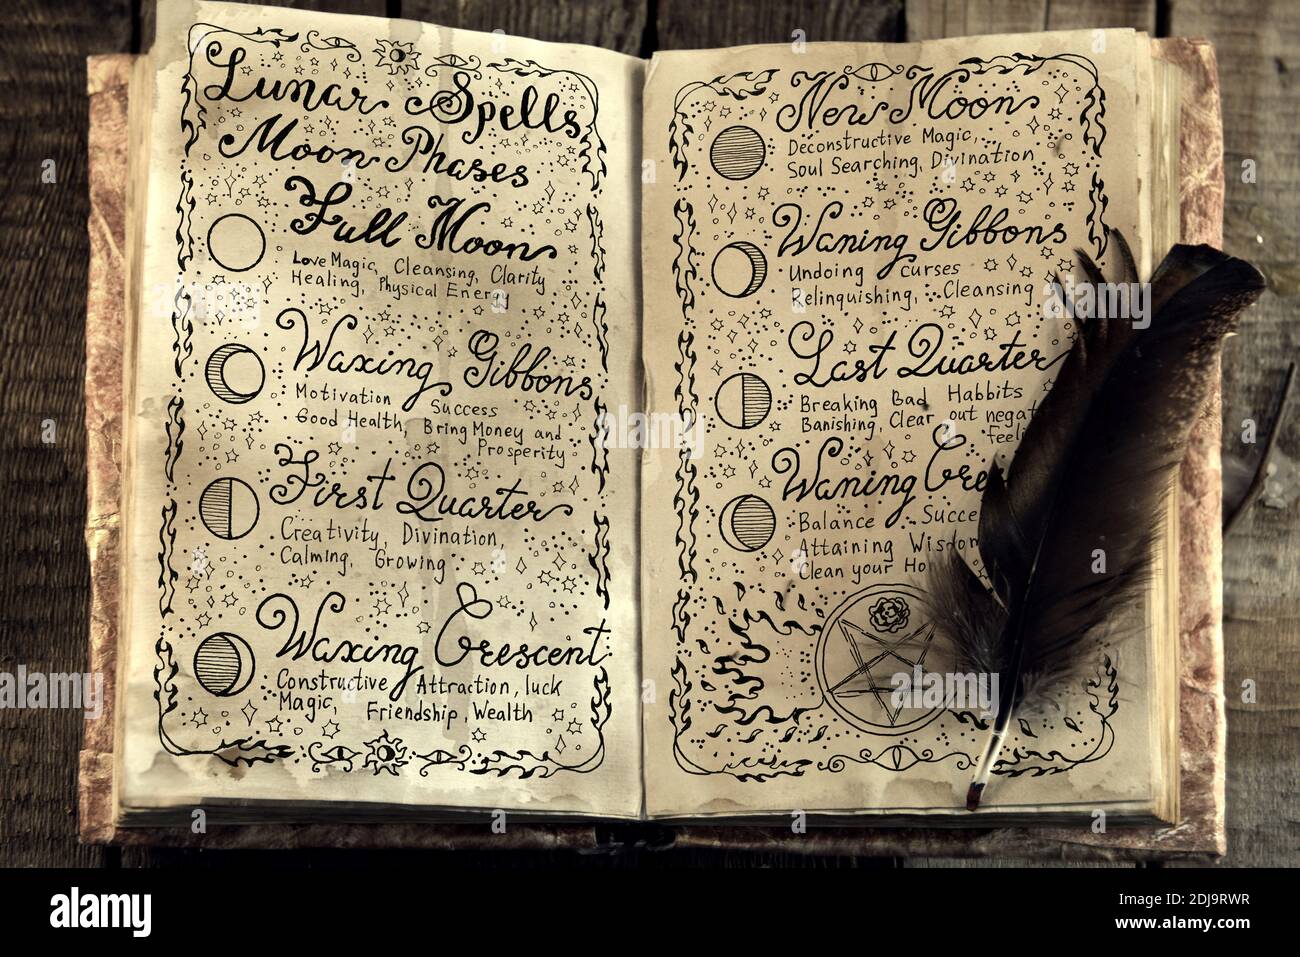 Lunar Spells
Moon Phases
Full Moon
Love Magic, Cleansing, Clarity
Healing, Physical Energy
Waxing Gibbons
Motivation Success
Good Health, Bring Money and
Prosperity
First Quarter
Creativity, Divination,
Calming, Growing
Waxing Crescent
Constructive Attraction, luck
Magic, Friendship, Wealth
New Moon
Deconstructive Magic,
Soul Searching, Divination
Waning Gibbons
Undoing curses
Relinquishing, Cleansing
Last Quarter
Breaking Bad Habbits
Banishing, Clear out
Waning
Balance
Attaining
Clean your
a alamy
alamy
Image ID: 2DJ9RWR
www.alamy.com